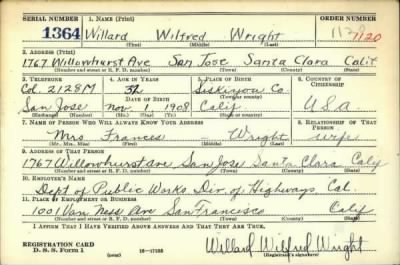 SERIAL NUMBER 1. NAME (Print) ORDER NUMBER
1364 Willard Wilfred Wright 1120
(First) (Middle) (Last)
2. ADDRESS (Print)
1767 Willowhurst Ave San Jose Santa Clara Calif
(Number and street or R. F. D. number) (Town) (County) (State)
3. TELEPHONE 4. AGE IN YEARS 5. PLACE OF BIRTH 6. COUNTRY OF CITIZENSHIP
Col. 2128M 32 Siskiyou Co.
DATE OF BIRTH
San Jose Nov. 1 1908 Calif U.S.A
(Exchange) (Number) (Mo.) (Day) (Yr.) (State or country)
7. NAME OF PERSON WHO WILL ALWAYS KNOW YOUR ADDRESS 8. RELATIONSHIP OF THAT PERSON
Mrs Frances Wright wife
(Mr., Mrs., Miss) (First) (Middle) (Last)
9. ADDRESS OF THAT PERSON
1767 Willowhurst ave San Jose Santa Clara Caly
(Number and street or R. F. D. number) (Town) (County) (State)
10. EMPLOYER'S NAME
Dept of Public Works Div of Highways Cal.
11. PLACE OF EMPLOYMENT OR BUSINESS
1001 Van Ness Ave San Francisco Calif
(Number and street or R. F. D. number) (Town) (County) (State)
I AFFIRM THAT I HAVE VERIFIED ABOVE ANSWERS AND THAT THEY ARE TRUE.
REGISTRATION CARD
D. S. S. Form 1 16—17105 Willard Wilfred Wright
(Registrant's signature)